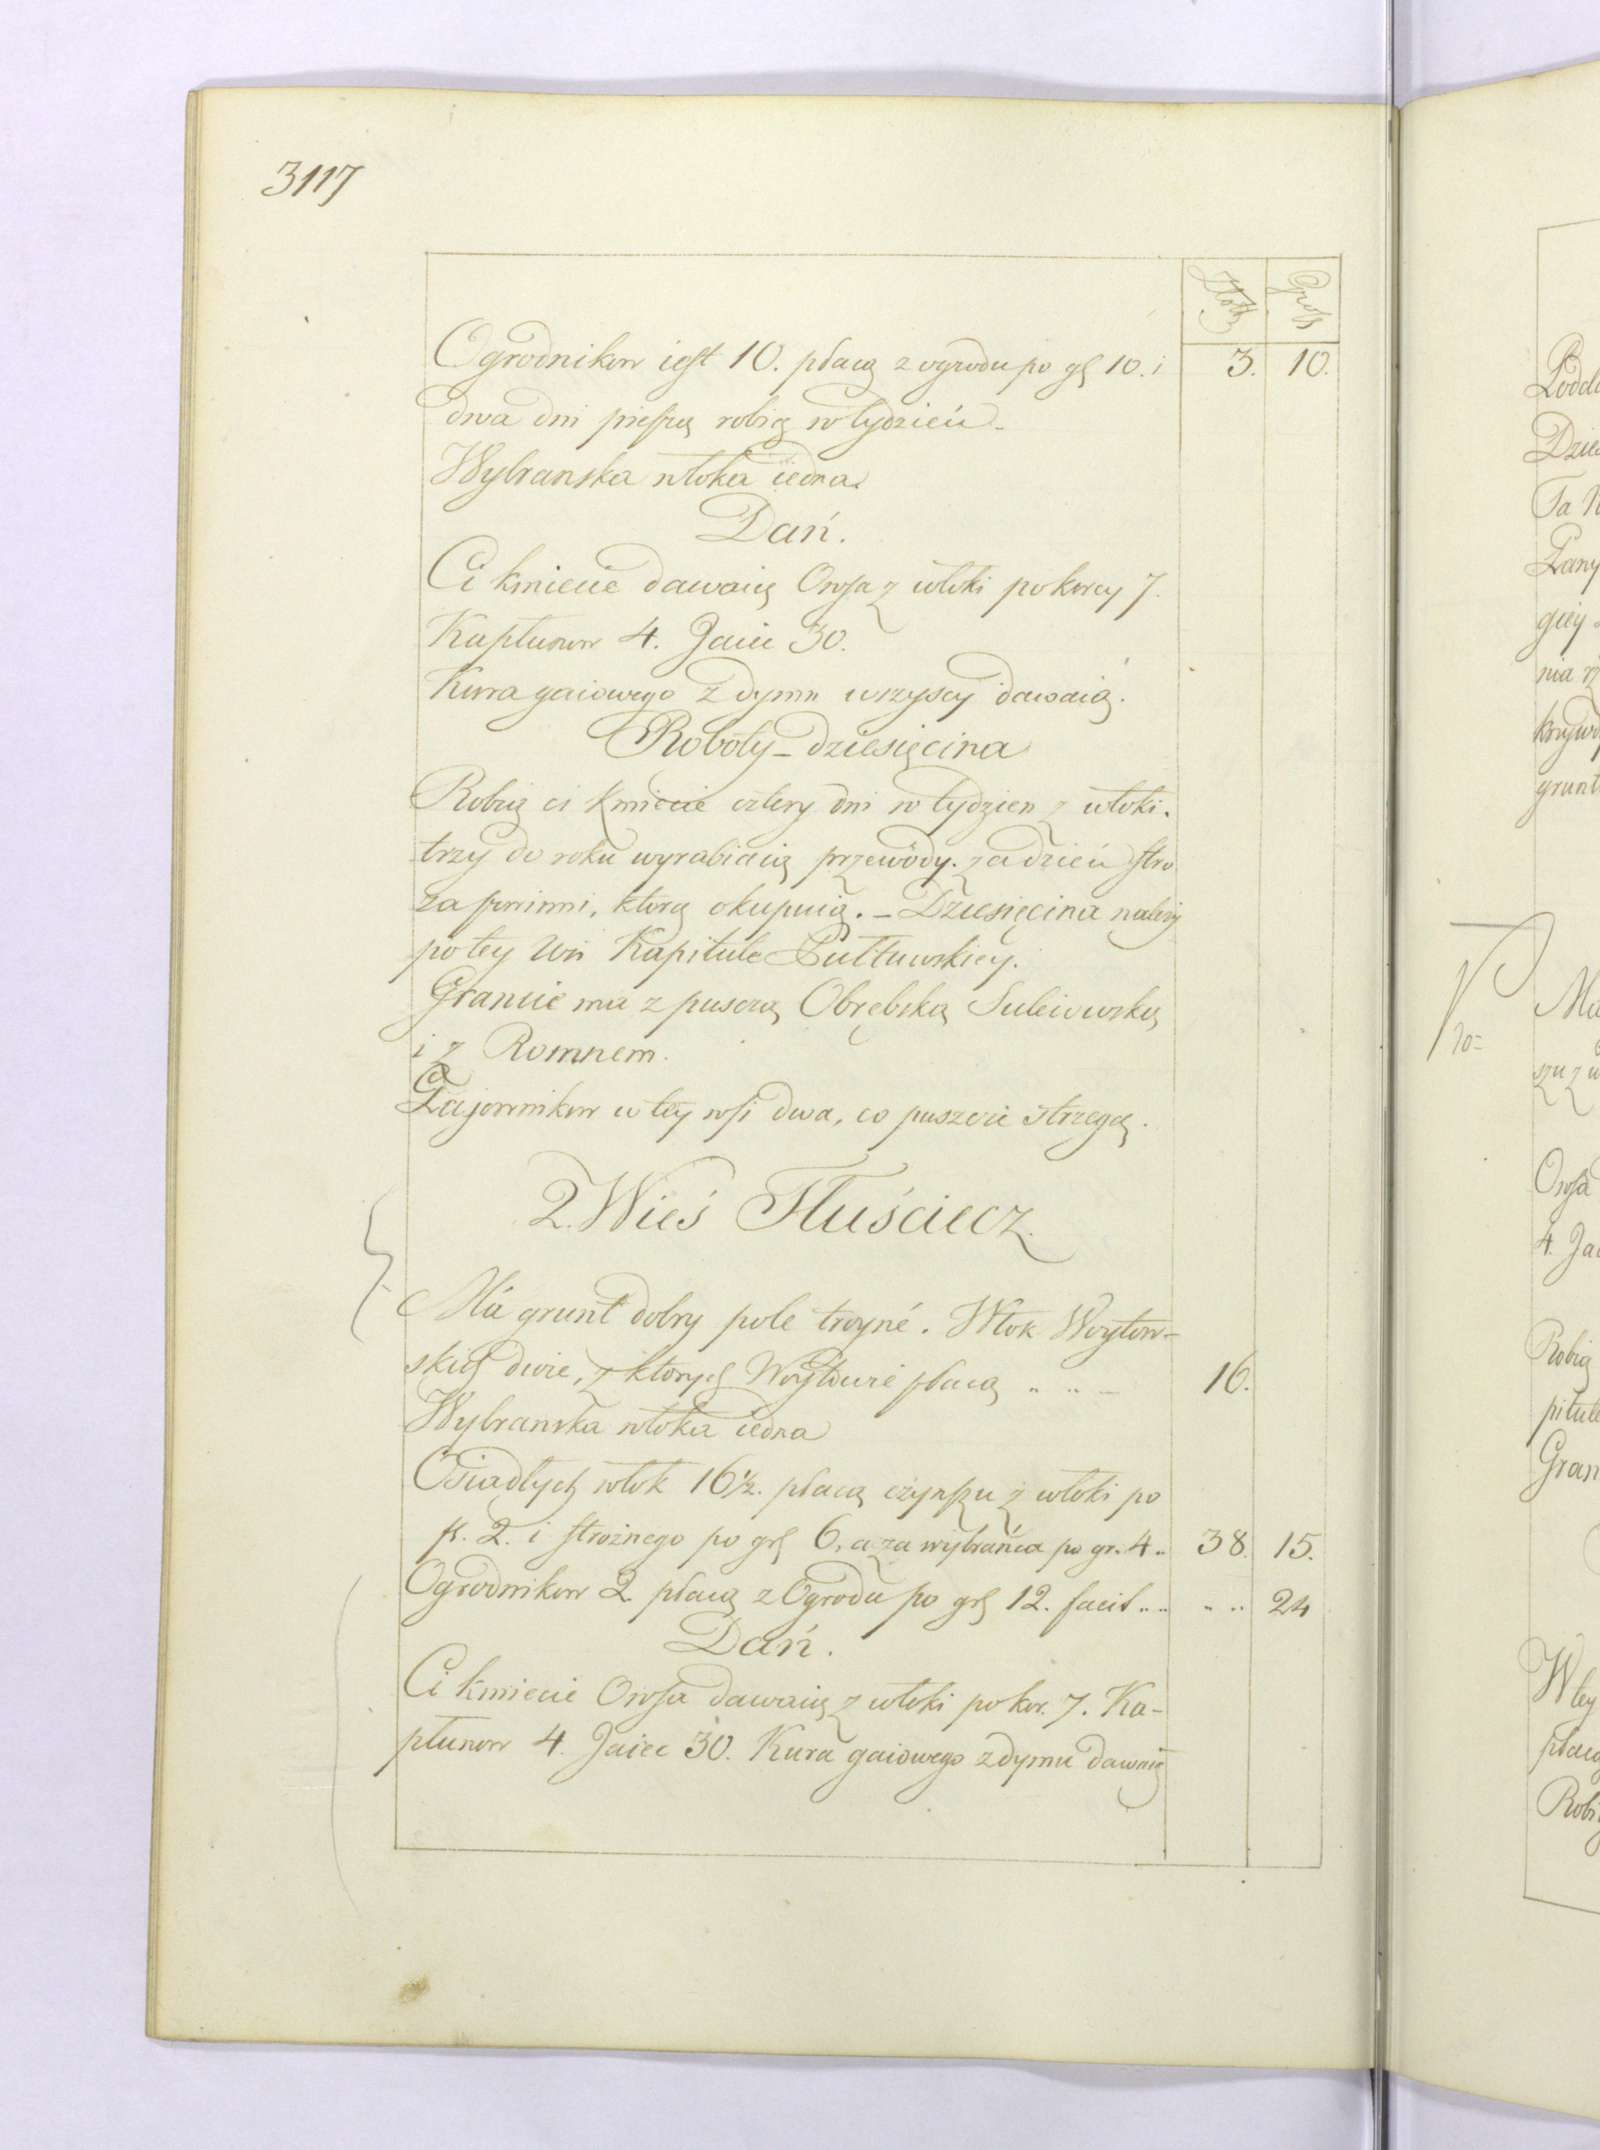 3117
Złote Grosz
Ogrodnikow iest 10. płacą z ogrodu po gß 10. i 3. 10.
dwa dni pieszą robią w tydzień.
Wybranska włoka iedna.
Dań.
Ci kmiecie dawaią Owsa z włoki po korcy 7.
Kapłunow 4. Jaiec 30.
Kura gaiowego z dymu wszyscy dawaią.
Roboty - dziesięcina
Robią ci kmiecie cztery dni w tydzien z włoki.
trzy do roku wyrabiaią przewody. za dzień stro
za powinni, ktorą okupuią. - Dziesięcina należy
po tey wsi Kapitule Pułtuwskiey.
Granice ma z puszczą Obrębską Suleiowską
i z Romnem.
Gajownikow w tey wsi dwa, co puszcze strzegą.
2. Wieś Tłuściecz
Má grunt dobry pole troyné. Włok Woytow-
skich dwie, z ktorych Woytowie płacą .. .. - 16.
Wybranska włoka iedna
Osiadłych włok 16½. płacą czynszu z włoki po
fl. 2. i stroznego po grß 6, a za wybráńca po gr. 4.. 38. 15.
Ogrodnikow 2 płacą z Ogrodu po grß 12. facit .. .. .. .. 24
Dań.
Ci kmiecie Owsa dawaią z włoki po kor. 7. Ka-
płunow 4. Jaiec 30. Kura gaiowego z dymu dawaią